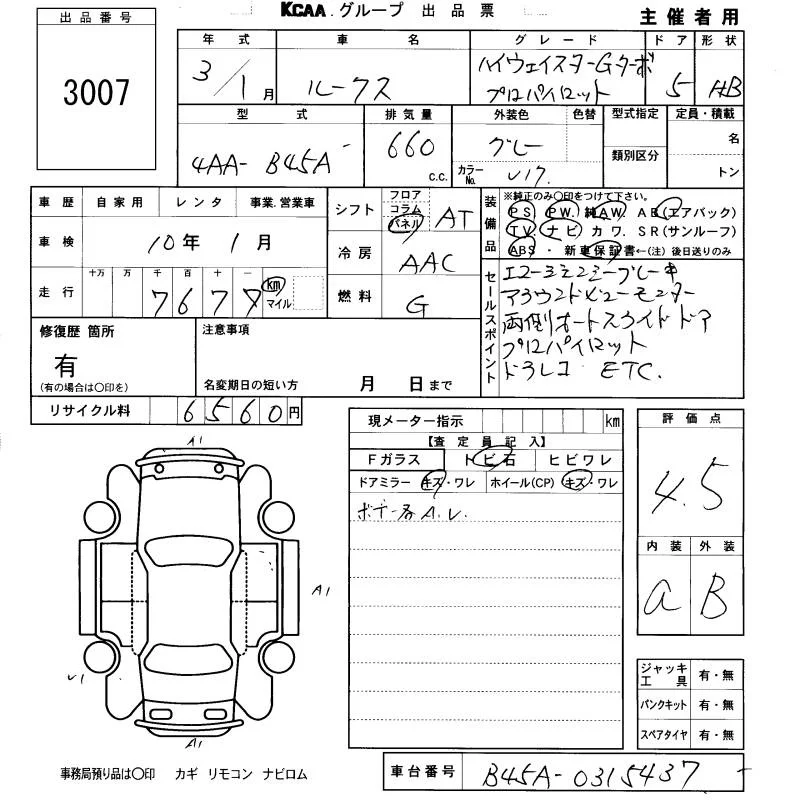 出品番号
KCAA.グループ 出品票
主催者用
3007
年式 車名 グレード ドア 形状
3/1月 ルークス ハイウェイスターGターボ
プロパイロット 5 HB
型式 排気量 外装色 色替 型式指定 定員・積載
4AA- B45A 660 c.c. グレー カラーNo. 類別区分 名
トン
車歴 自家用 レンタ 事業.営業車
シフト フロア コラム パネル AT
装備品 ※純正のみ〇印をつけて下さい。
PS PW. 純AW. AB(エアバック)
TV. ナビ カワ. SR(サンルーフ)
ABS・新車保証書←(注)後日送りのみ
車検 10年 1月
冷房 AAC
走行 十万 万 千 百 十 一
7 6 7 km マイル
燃料 G
セールスポイント エマージェンシーブレーキ
アラウンドビューモニター
両側オートスライドドア
プロパイロット
ドラレコ ETC.
修復歴 箇所
有
(有の場合は〇印を)
注意事項
名変期日の短い方 月 日まで
リサイクル料 6560円
現メーター指示 km
【査定員記入】
Fガラス トビ石 ヒビワレ
ドアミラー キズ・ワレ ホイール(CP) キズ・ワレ
ボデー各A.U.
評価点
4.5
内装 外装
a B
A1
A1
U1
A1
ジャッキ工具 有・無
パンクキット 有・無
スペアタイヤ 有・無
事務局預り品は〇印 カギ リモコン ナビロム
車台番号 B45A-0315437